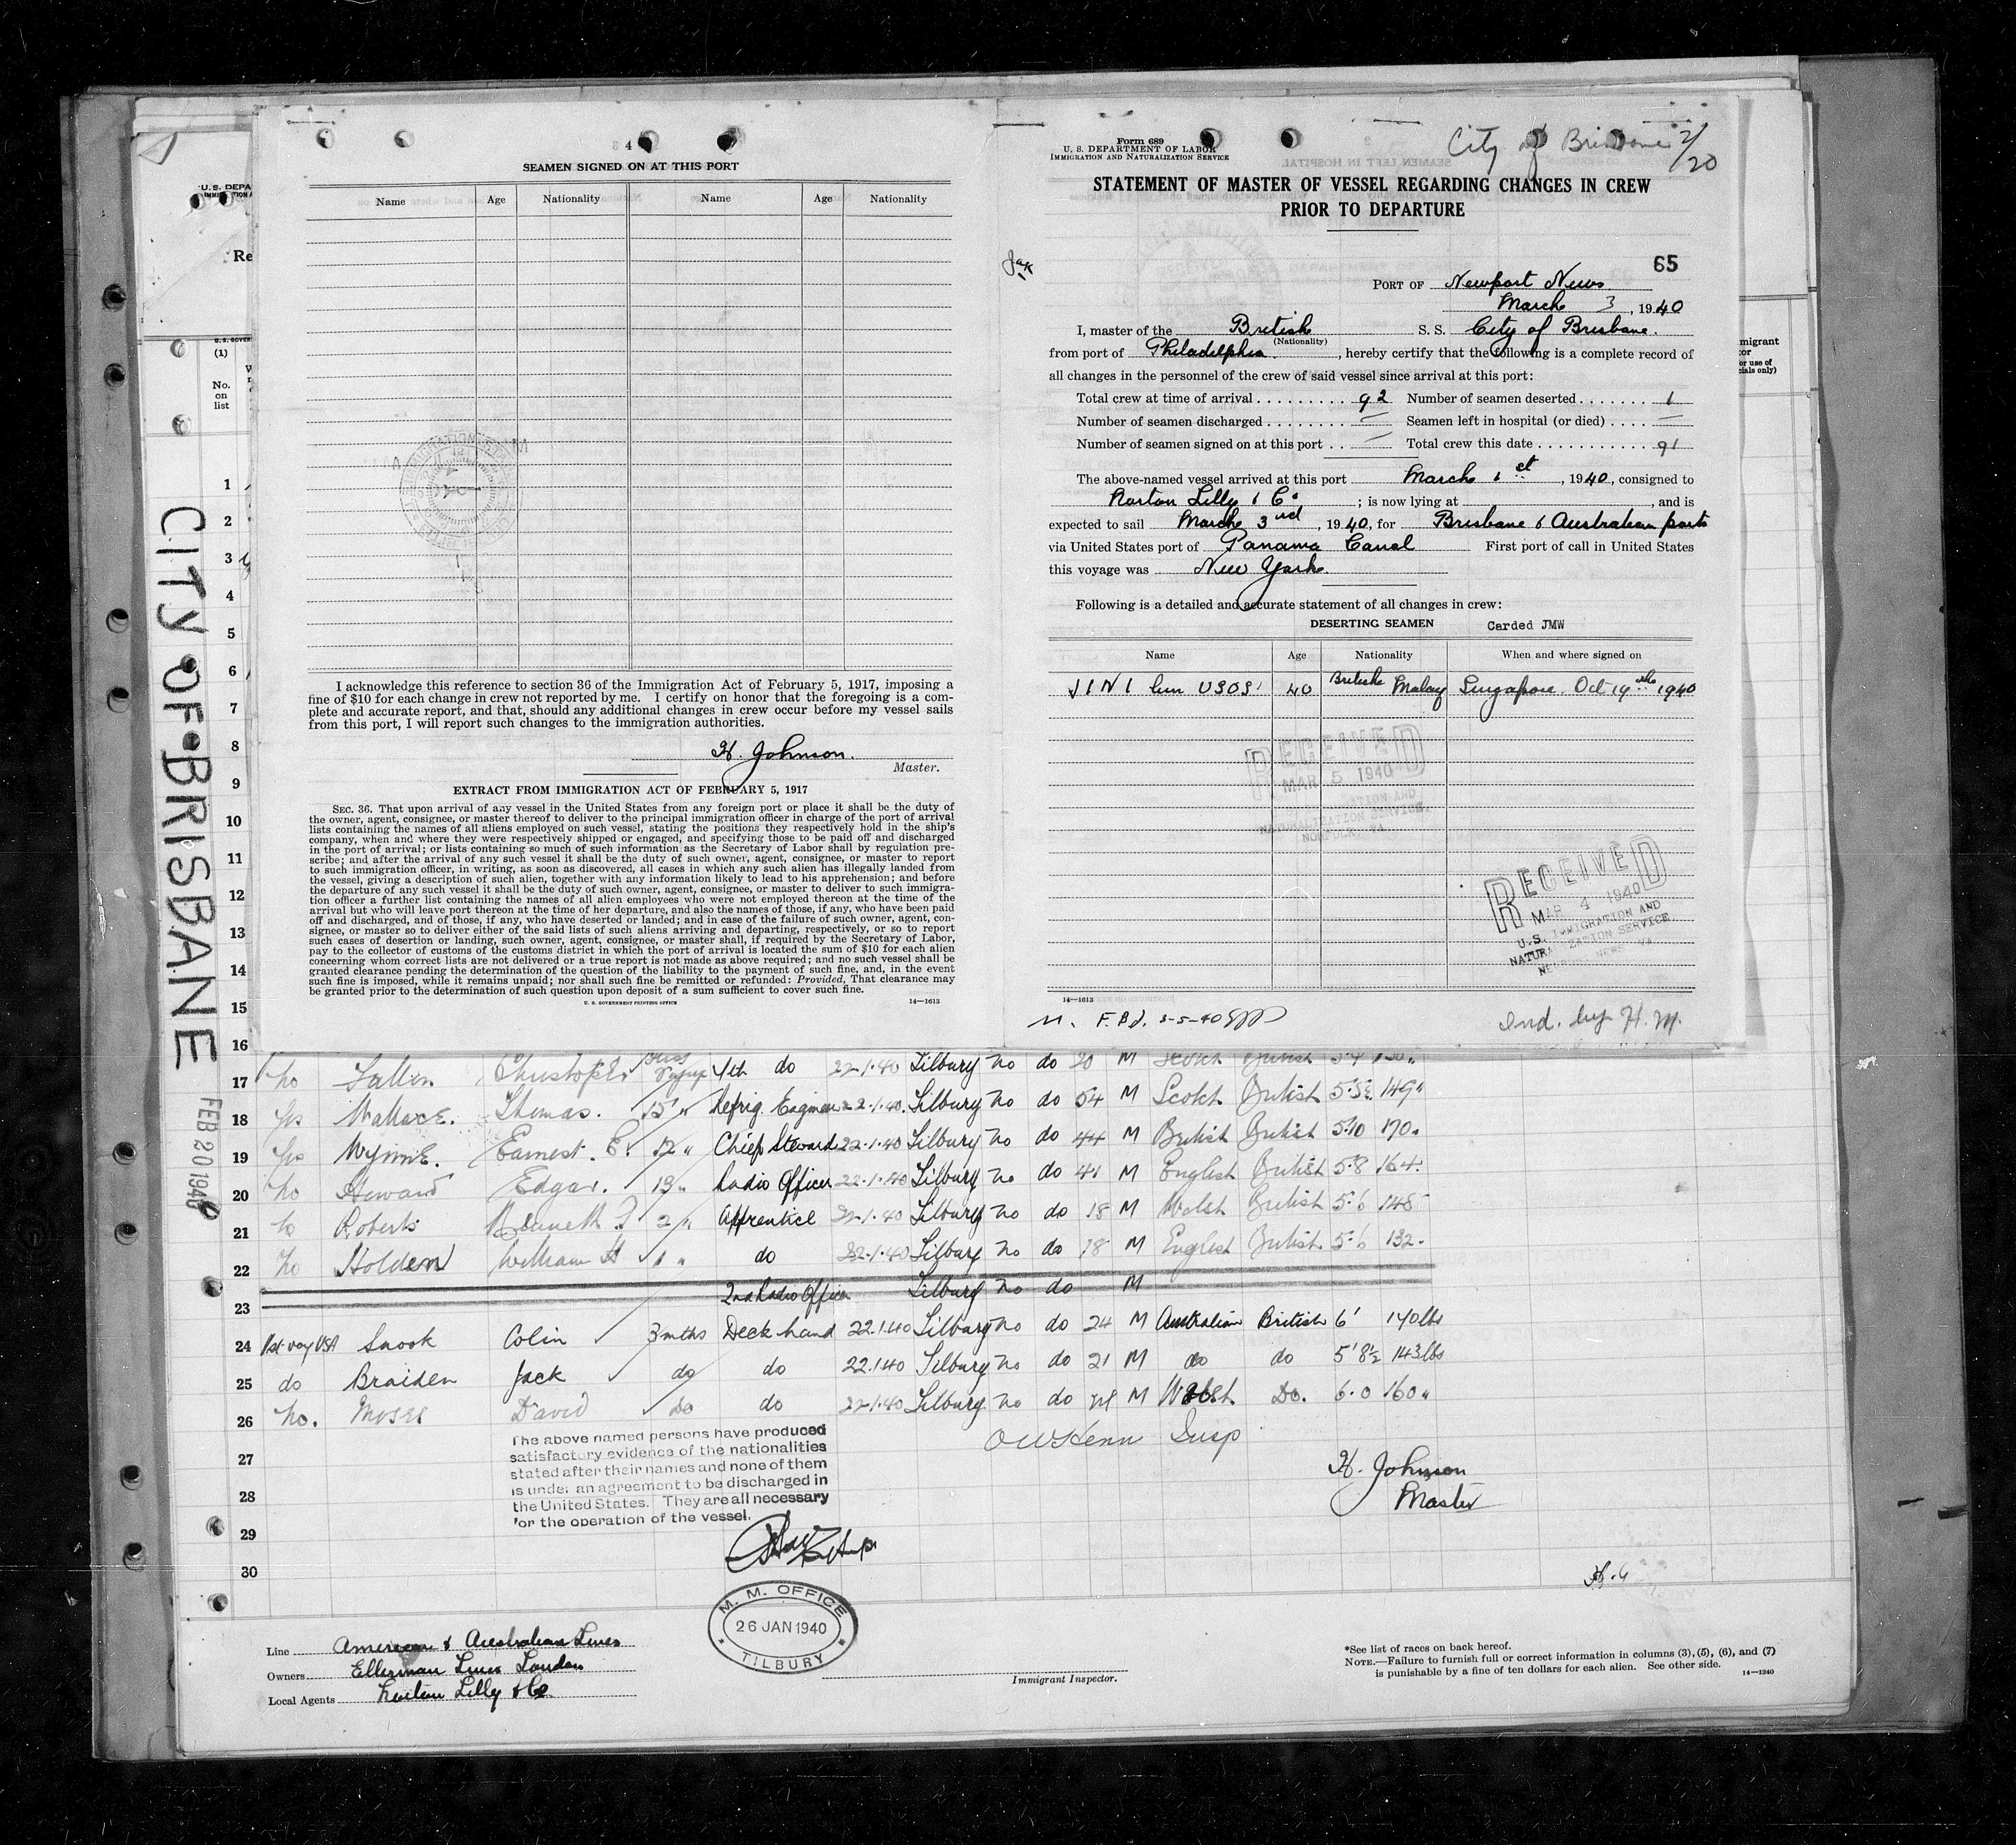 4
SEAMEN SIGNED ON AT THIS PORT
Name Age Nationality Name Age Nationality
I acknowledge this reference to section 36 of the Immigration Act of February 5, 1917, imposing a
fine of $10 for each change in crew not reported by me. I certify on honor that the foregoing is a com-
plete and accurate report, and that, should any additional changes in crew occur before my vessel sails
from this port, I will report such changes to the immigration authorities.
H. Johnson.
Master.
EXTRACT FROM IMMIGRATION ACT OF FEBRUARY 5, 1917
SEC. 36. That upon arrival of any vessel in the United States from any foreign port or place it shall be the duty of
the owner, agent, consignee, or master thereof to deliver to the principal immigration officer in charge of the port of arrival
lists containing the names of all aliens employed on such vessel, stating the positions they respectively hold in the ship's
company, when and where they were respectively shipped or engaged, and specifying those to be paid off and discharged
in the port of arrival; or lists containing so much of such information as the Secretary of Labor shall by regulation pre-
scribe; and after the arrival of any such vessel it shall be the duty of such owner, agent, consignee, or master to report
to such immigration officer, in writing, as soon as discovered, all cases in which any such alien has illegally landed from
the vessel, giving a description of such alien, together with any information likely to lead to his apprehension; and before
the departure of any such vessel it shall be the duty of such owner, agent, consignee, or master to deliver to such immigra-
tion officer a further list containing the names of all alien employees who were not employed thereon at the time of the
arrival but who will leave port thereon at the time of her departure, and also the names of those, if any, who have been paid
off and discharged, and of those, if any, who have deserted or landed; and in case of the failure of such owner, agent, con-
signee, or master so to deliver either of the said lists of such aliens arriving and departing, respectively, or so to report
such cases of desertion or landing, such owner, agent, consignee, or master shall, if required by the Secretary of Labor,
pay to the collector of customs of the customs district in which the port of arrival is located the sum of $10 for each alien
concerning whom correct lists are not delivered or a true report is not made as above required; and no such vessel shall be
granted clearance pending the determination of the question of the liability to the payment of such fine, and, in the event
such fine is imposed, while it remains unpaid; nor shall such fine be remitted or refunded: Provided, That clearance may
be granted prior to the determination of such question upon deposit of a sum sufficient to cover such fine.
U. S. GOVERNMENT PRINTING OFFICE 14—1613
Form 689
U. S. DEPARTMENT OF LABOR
IMMIGRATION AND NATURALIZATION SERVICE
City of Brisbane 2/20
STATEMENT OF MASTER OF VESSEL REGARDING CHANGES IN CREW
PRIOR TO DEPARTURE
65
PORT OF Newport News
March 3, 1940
I, master of the British S. S. City of Brisbane.
(Nationality)
from port of Philadelphia, hereby certify that the following is a complete record of
all changes in the personnel of the crew of said vessel since arrival at this port:
Total crew at time of arrival 92 Number of seamen deserted 1
Number of seamen discharged — Seamen left in hospital (or died) —
Number of seamen signed on at this port — Total crew this date 91
The above-named vessel arrived at this port March 1st, 1940, consigned to
Norton Lilly & Co; is now lying at , and is
expected to sail March 3rd, 1940, for Brisbane & Australian ports
via United States port of Panama Canal First port of call in United States
this voyage was New York
Following is a detailed and accurate statement of all changes in crew:
DESERTING SEAMEN Carded JMW
Name Age Nationality When and where signed on
JINI bin USOS 40 British Malay Singapore Oct 19th 1940
RECEIVED
MAR 5 1940
NATURALIZATION SERVICE
NORFOLK, VA.
RECEIVED
MAR 4 1940
U.S. IMMIGRATION AND
NATURALIZATION SERVICE
NEWPORT NEWS, VA.
14—1613
3-5-40
Ind. by H. M.
U. S. DEPA
Re
(1)
No.
on
list
migrant
or
or use of
cials only)
CITY OF BRISBANE
FEB 20 1940
1
2
3
4
5
6
7
8
9
10
11
12
13
14
15
16
17 no Christopher 4th do 22-1-40 Tilbury no do 20 M Scotch British 5-4
18 yes Wallace. Thomas. 15 " Refrig. Engineer 22-1-40. Tilbury no do 54 M Scotch British 149"
19 yes Wynne. Earnest. E. 12 " Chief Steward 22-1-40 Tilbury no do 44 M British British 5-10 170.
20 no Howard Edgar. 19 " Radio Officer 22-1-40 Tilbury no do 41 M English British 5-8 164.
21 no Roberts Kenneth J 2 " Apprentice 22-1-40 Tilbury no do 18 M Welsh British 5-6 148
22 no Holden William H 1 " do 22-1-40 Tilbury no do 18 M English British 5-6 132.
23 2nd Radio Officer Tilbury no do M
24 1st voy USA Snook Colin 3 mths Deck hand 22.1.40 Tilbury no do 24 M Australian British 6' 140lbs
25 do Braiden Jack do do 22.1.40 Tilbury no do 21 M do do 5'8½ 143lbs
26 no. Moses David do do 22-1-40 Tilbury no do 21 M Welsh Do. 6.0 160"
27
28
29
30
The above named persons have produced
satisfactory evidence of the nationalities
stated after their names and none of them
is under an agreement to be discharged in
the United States. They are all necessary
for the operation of the vessel.
H. Johnson
Master
M. M. OFFICE
26 JAN 1940
TILBURY
Line American & Australian Lines
Owners Ellerman Lines London
Local Agents Norton Lilly & Co.
Immigrant Inspector.
*See list of races on back hereof.
NOTE.—Failure to furnish full or correct information in columns (3), (5), (6), and (7)
is punishable by a fine of ten dollars for each alien. See other side. 14—1240